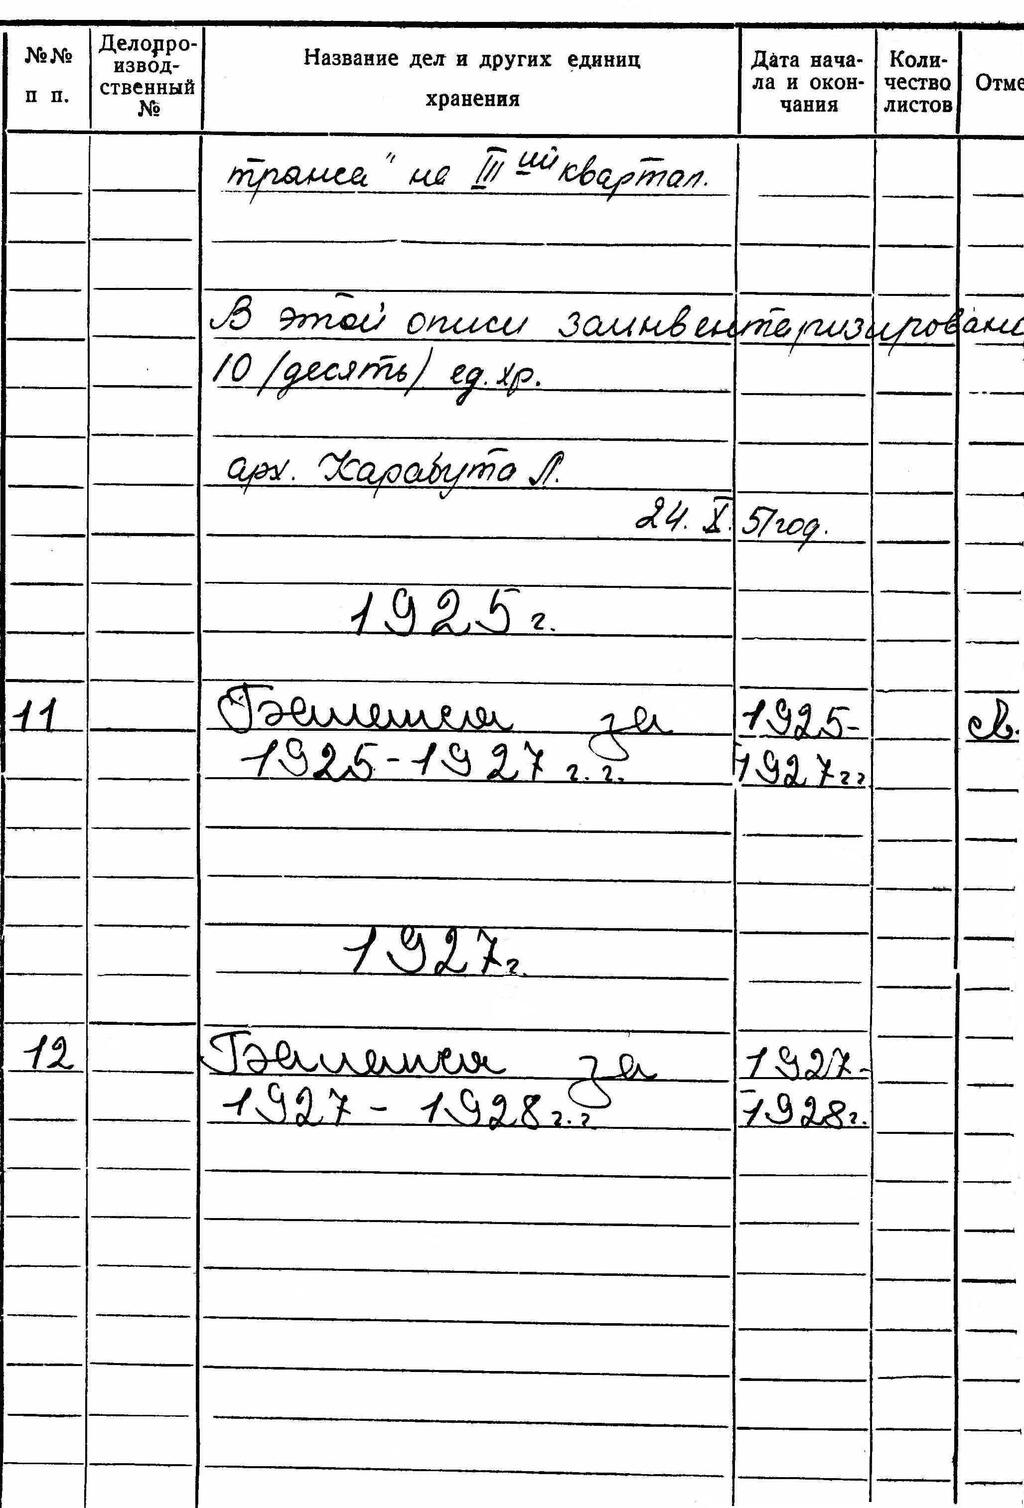 №№
п п.
Делопро-
извод-
ственный
№
Название дел и других единиц
хранения
Дата нача-
ла и окон-
чания
Коли-
чество
листов
Отме
транса" на III ий квартал.
В этой описи заинвентаризировано
10 (десять) ед. хр.
арх. Карабута Л.
24. X. 51 год.
1925 г.
11 за 1925-
1925-1927 г. г. 1927 г г
1927 г.
12 за 1927-
1927 - 1928 г. г 1928 г.